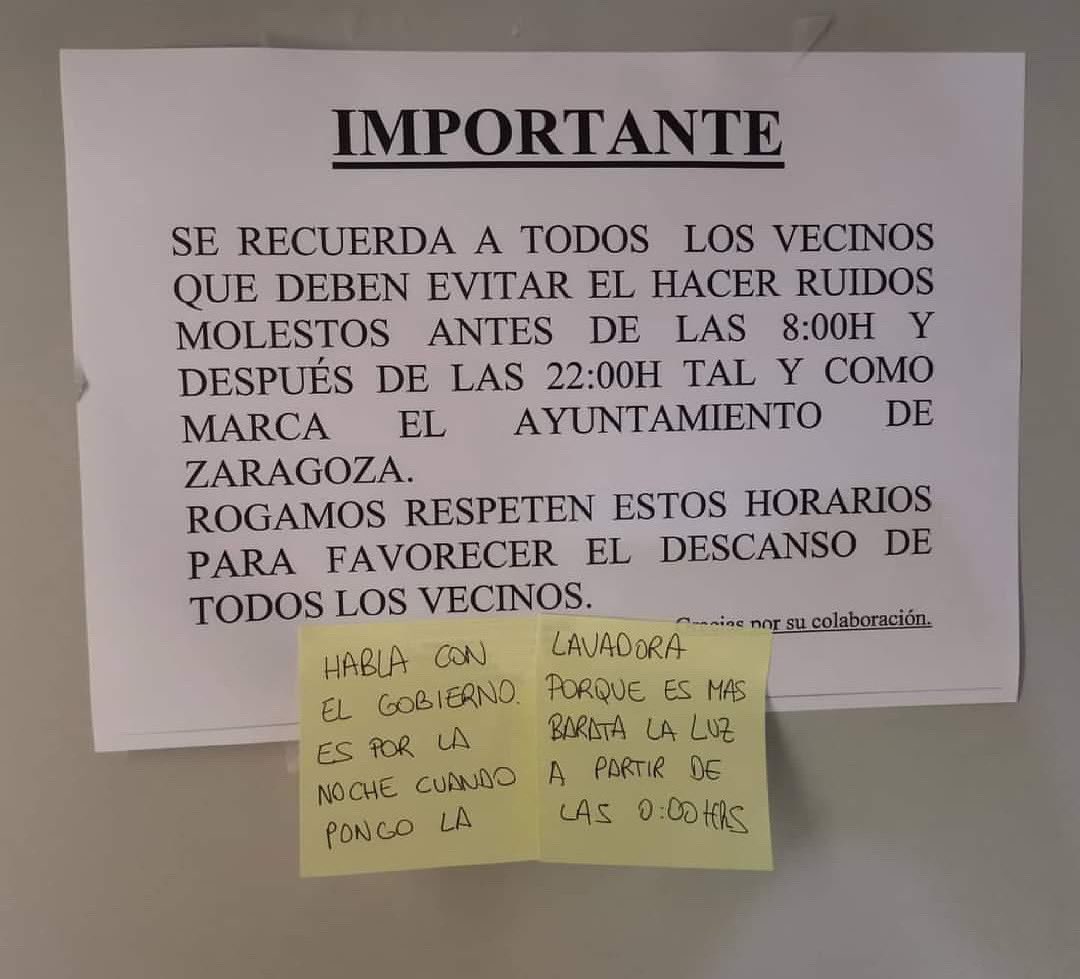 IMPORTANTE
SE RECUERDA A TODOS LOS VECINOS
QUE DEBEN EVITAR EL HACER RUIDOS
MOLESTOS ANTES DE LAS 8:00H Y
DESPUÉS DE LAS 22:00H TAL Y COMO
MARCA EL AYUNTAMIENTO DE
ZARAGOZA.
ROGAMOS RESPETEN ESTOS HORARIOS
PARA FAVORECER EL DESCANSO DE
TODOS LOS VECINOS.
Gracias por su colaboración.
HABLA CON
EL GOBIERNO.
ES POR LA
NOCHE CUANDO
PONGO LA
LAVADORA
PORQUE ES MAS
BARATA LA LUZ
A PARTIR DE
LAS 0:00HRS